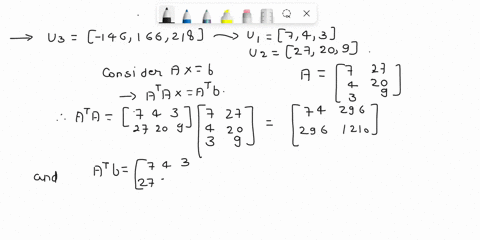 → U3 = [-146, 166, 218] → U1 = [7, 4, 3]
U2 = [27, 20, 9].
Consider Ax = b
A = [7 27
4 20
3 9]
→ AᵀAx = Aᵀb.
∴ AᵀA = [7 4 3
27 20 9] [7 27
4 20
3 9] = [74 296
296 1210]
and Aᵀb = [7 4 3
27